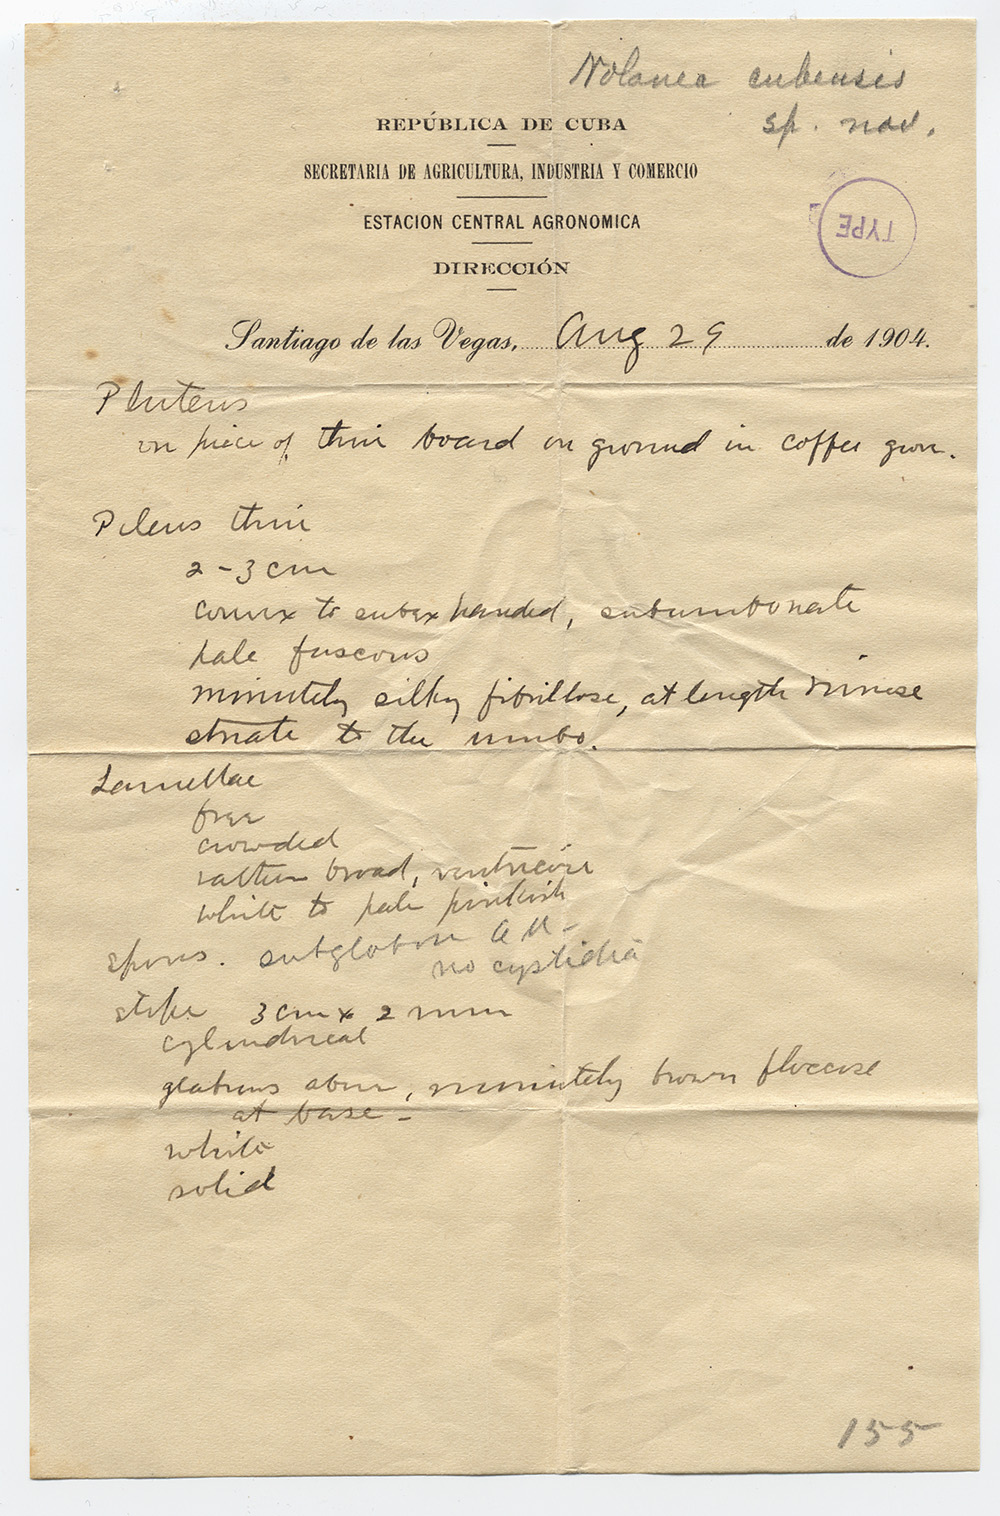 Nolanea cubensis
sp. nov.
REPÚBLICA DE CUBA
SECRETARIA DE AGRICULTURA, INDUSTRIA Y COMERCIO
TYPE
ESTACION CENTRAL AGRONOMICA
DIRECCIÓN
Santiago de las Vegas, Aug 29 de 1904.
Pluteus
on piece of thin board on ground in coffee grove.
Pileus thin
2-3 cm
convex to subexpanded, subumbonate
pale fuscous
minutely silky fibrillose, at length rimose
striate to the umbo.
Lamellae
free
crowded
rather broad, ventricose
white to pale pinkish
spores. subglobose 6 u -
no cystidia
stipe 3 cm x 2 mm
cylindrical
glabrous above, minutely brown floccose
at base -
white
solid
155